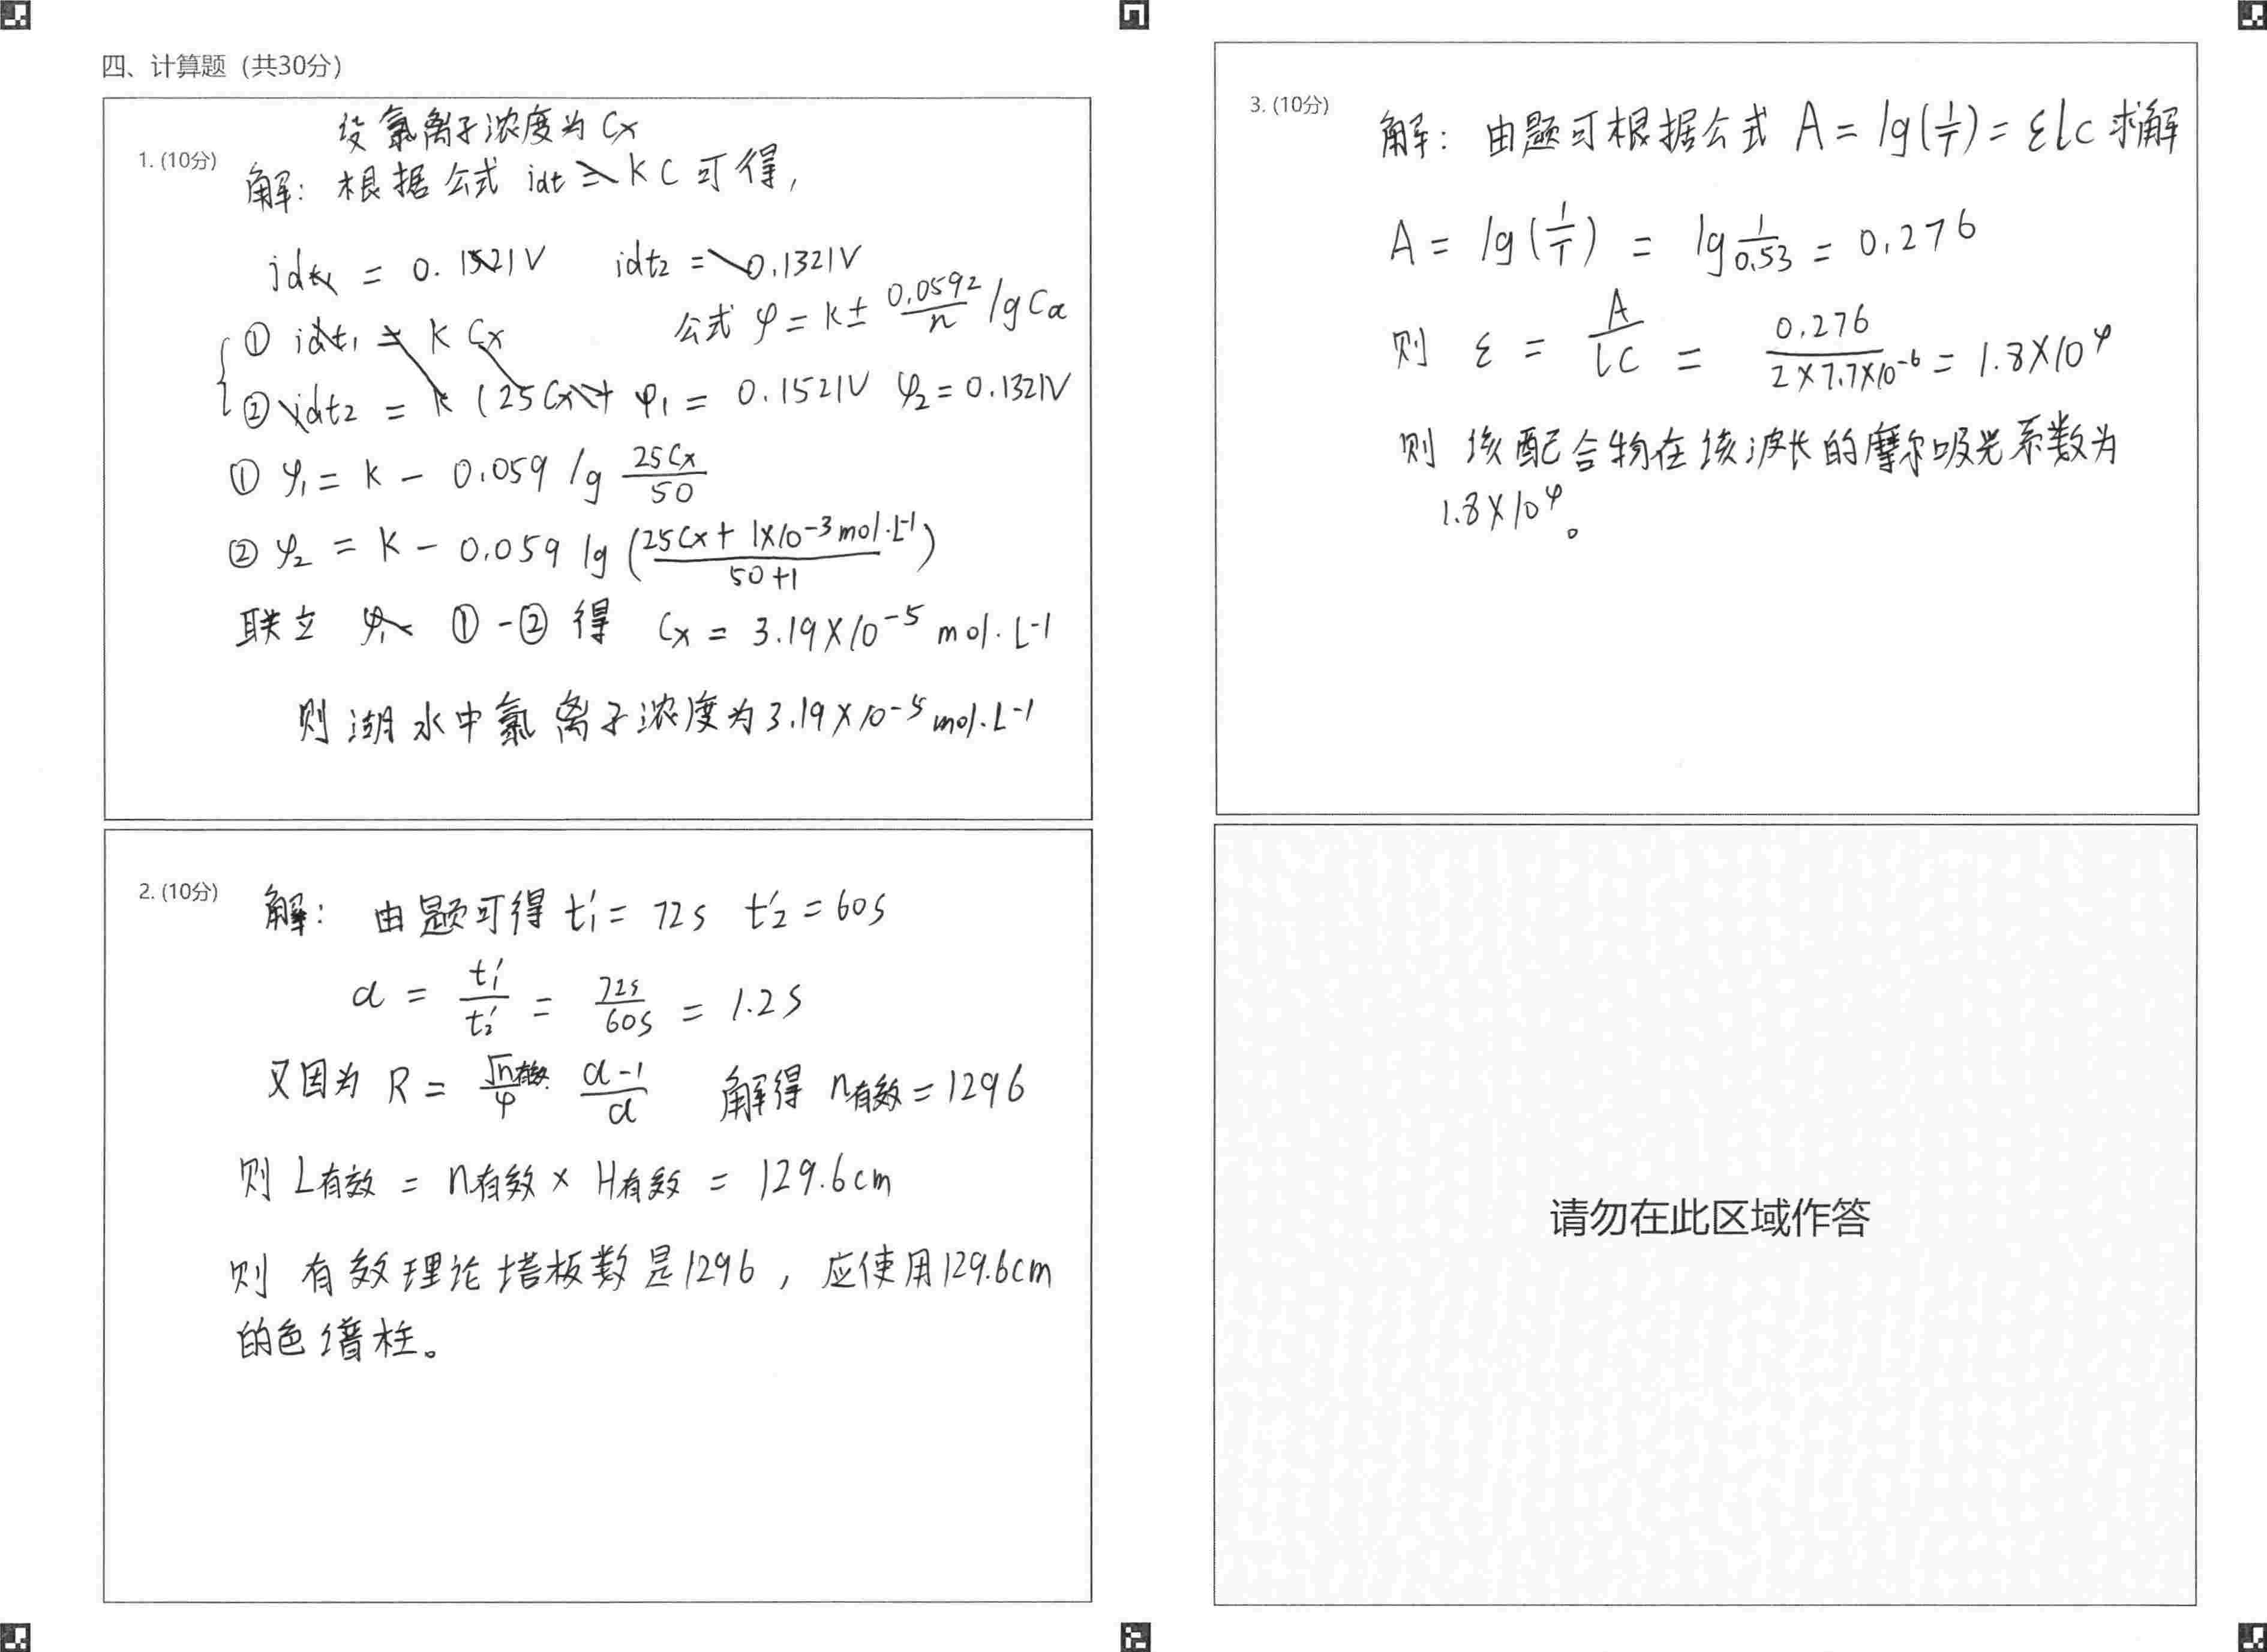 四、计算题（共30分）
1. (10分)
设氯离子浓度为 Cx
解：根据公式 idt = KC 可得，
idt1 = 0.1521V idt2 = 0.1321V
公式 φ = k ± 0.0592/n lg Cα
① idt1 = K Cx
② idt2 = K (25Cx)+ φ1 = 0.1521V φ2 = 0.1321V
① φ1 = K - 0.059 lg 25Cx/50
② φ2 = K - 0.059 lg (25Cx + 1×10⁻³mol·L⁻¹/50+1)
联立 φ1 ① - ② 得 Cx = 3.19×10⁻⁵ mol·L⁻¹
则湖水中氯离子浓度为 3.19×10⁻⁵ mol·L⁻¹
2. (10分)
解：由题可得 t1' = 72s t2' = 60s
α = t1'/t2' = 72s/60s = 1.2s
又因为 R = √n有效/4 · α-1/α 解得 n有效 = 1296
则 L有效 = n有效 × H有效 = 129.6cm
则有效理论塔板数是1296，应使用129.6cm
的色谱柱。
3. (10分)
解：由题可根据公式 A = lg(1/T) = εlc 求解
A = lg(1/T) = lg 1/0.53 = 0.276
则 ε = A/lC = 0.276/2×7.7×10⁻⁶ = 1.8×10⁴
则该配合物在该波长的摩尔吸光系数为
1.8×10⁴。
请勿在此区域作答